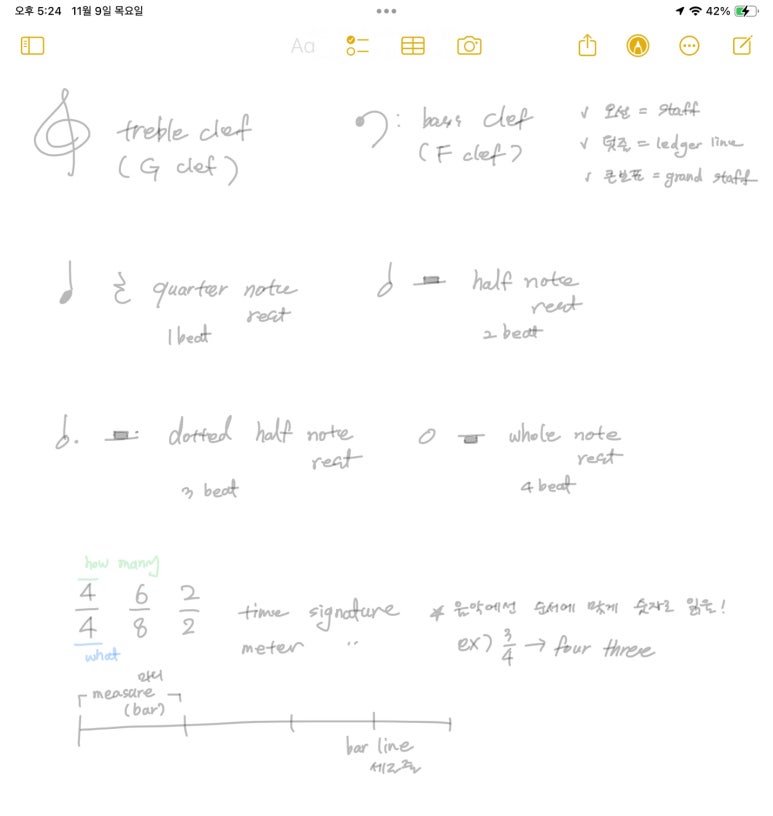 오후 5:24 11월 9일 목요일
42%
Aa
treble clef
(G clef)
bass clef
(F clef)
√ 오선 = staff
√ 덧줄 = ledger line
√ 큰보표 = grand staff
quarter note
rest
1 beat
half note
rest
2 beat
dotted half note
rest
3 beat
whole note
rest
4 beat
how many
4 6 2
4 8 2
what
time signature
meter "
* 음악에선 순서에 맞게 숫자로 읽음!
ex) 3/4 → four three
마디
measure
(bar)
bar line
세로줄